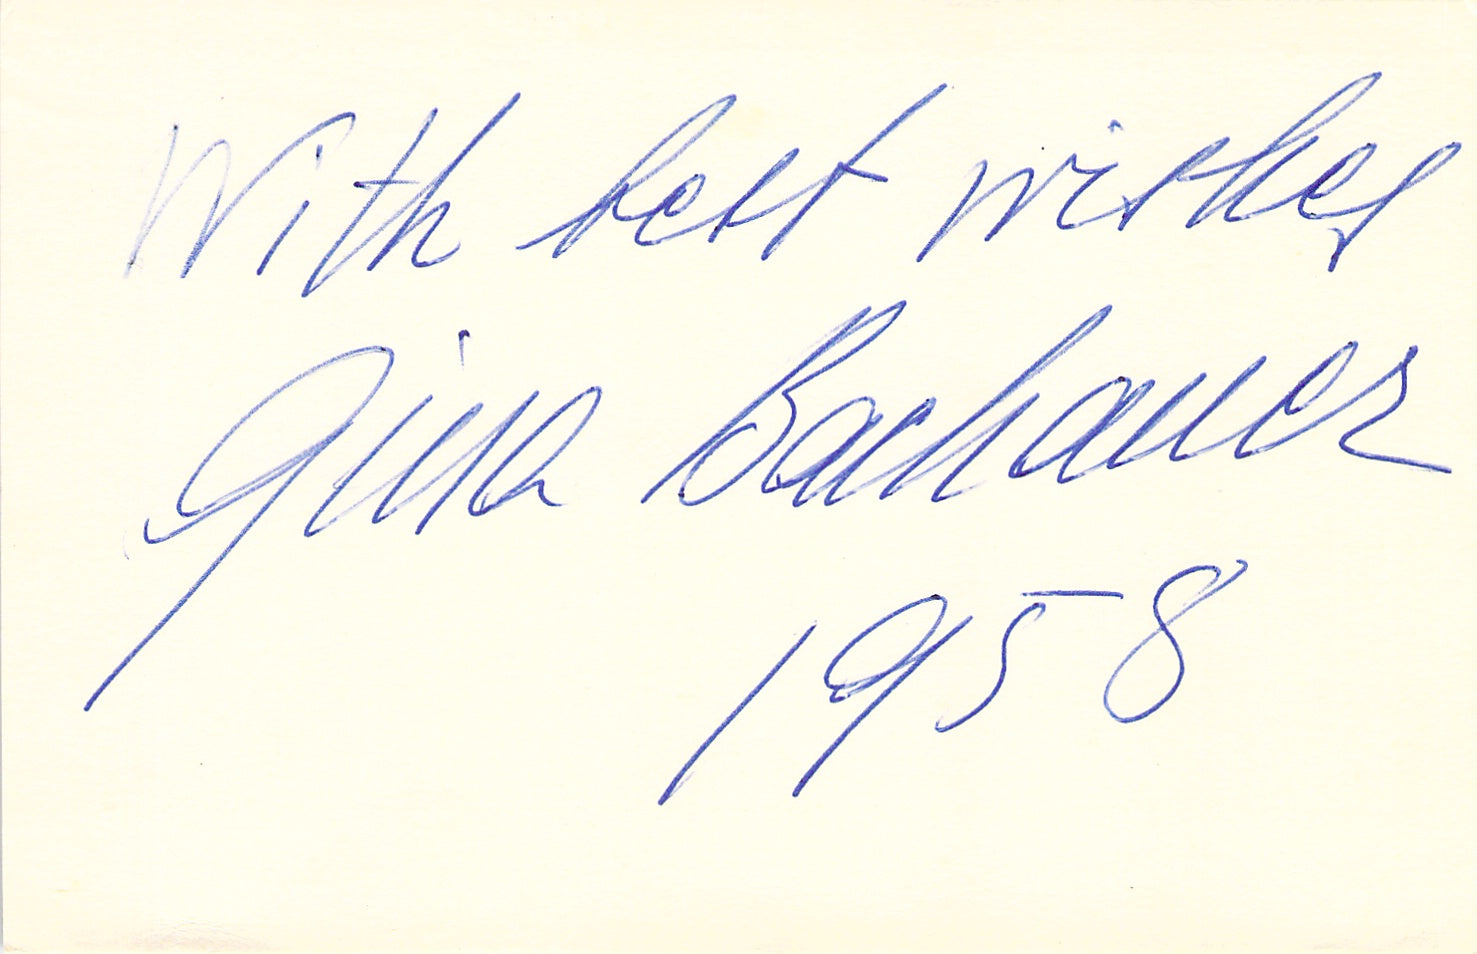 With best wishes
Gina Bachauer
1958